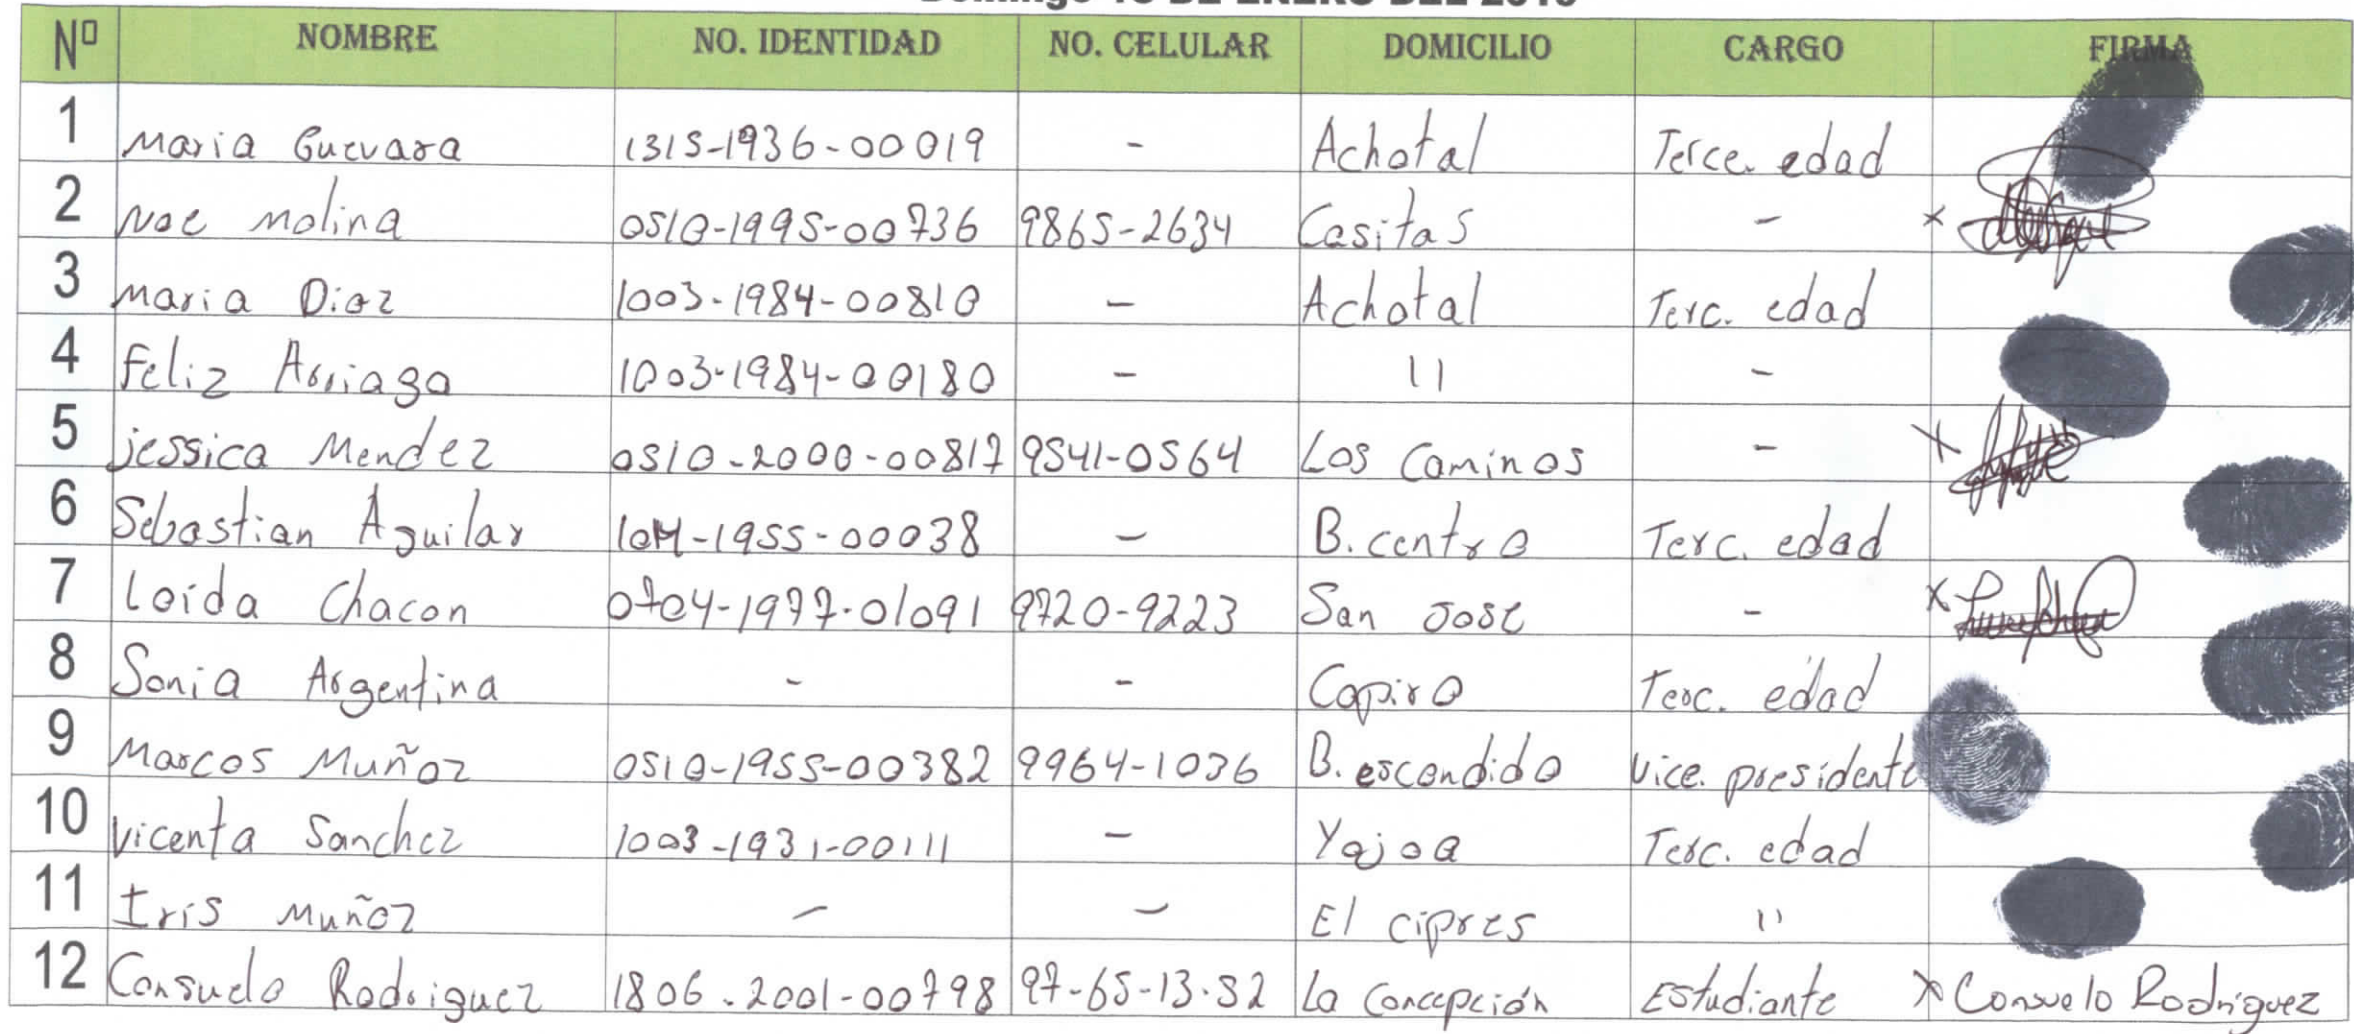 Domingo 18 DE ENERO DEL 2019
Nº NOMBRE NO. IDENTIDAD NO. CELULAR DOMICILIO CARGO FIRMA
1 Maria Guevara 1315-1936-00019 - Achotal Terce. edad
2 Noe Molina 0510-1995-00736 9865-2634 Casitas - x
3 Maria Diaz 1003-1984-00810 - Achotal Terc. edad
4 Feliz Arriaga 1003-1984-00180 - 11 -
5 jessica Mendez 0510-2000-00817 9541-0564 Los Caminos - x
6 Sebastian Aguilar -1955-00038 - B. centro Terc. edad
7 Loida Chacon 0704-1977-01091 9720-9223 San Jose - x
8 Sonia Argentina - - Copiro Terc. edad
9 Marcos Muñoz 0510-1955-00382 9964-1036 B. escondido Vice. presidente
10 Vicenta Sanchez 1003-1931-00111 - Yojoa Terc. edad
11 Iris Muñoz - - El cipres 11
12 Consuelo Rodriguez 1806-2001-00798 97-65-13-52 La Concepción Estudiante x Consuelo Rodriguez